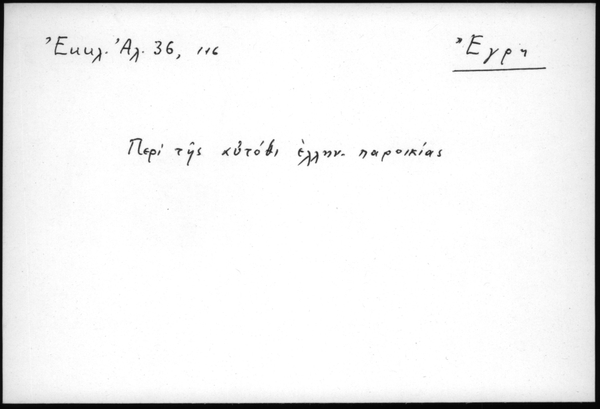 Ἐκκλ. Ἀλ. 36, 116
Ἔγρη
Περί τῆς αὐτόθι ἑλλην. παροικίας